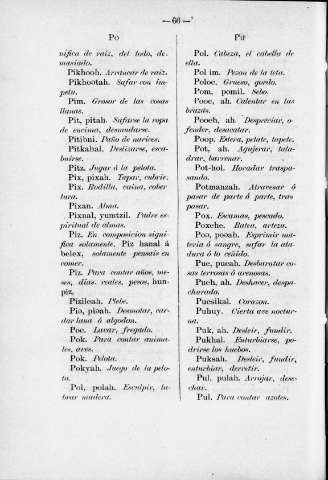 —66—
Po
nifica de raiz, del todo, de-
masiado.
Pikhooh. Arrancar de raiz.
Pikhootah. Safar con im-
petu.
Pim. Grosor de las cosas
llanas.
Pit, pitah. Safarse la ropa
de encima, desnudarse.
Pitibni. Paño de narices.
Pitkahal. Deslizarse, esca-
buirse.
Pitz. Jugar á la pelota.
Pix, pixah. Tapar, cubrir.
Pix. Rodilla, cuina, cober
tura.
Pixan. Alma.
Pixnal, yumtzil. Padre es-
piritual de almas.
Piz. En composicion signi-
fica solamente. Piz hanal á
belex, solamente pensais en
comer.
Piz. Para contar años, me-
ses, dias, reales, pesos, hun-
piz,
Pizileah. Plebe.
Po, poah. Desmotar, car-
dar lana ó algodon.
Poc. Lavar, fregado.
Pok. Para contar anima-
les, aves.
Pok. Pelota.
Pokyah. Juego de la pelo-
ta.
Pol, polah. Esculpir, la-
brar madera.
Pol. Cabeza, el cabello de
ella.
Pol im. Pezon de la teta.
Poloc. Grueso, gordo.
Pom, pomil. Sebo.
Pooc, ah. Calentar en las
brazas.
Pooch, ah. Despreciar, o-
fender, desacatar.
Poop. Estera, petate, tapete.
Pot, ah. Agujerar, tala-
drar, barrenar.
Pot-hol. Horadar traspa-
sando.
Potmanzah. Atravesar ó
pasar de parte á parte, tras
pasar.
Pox. Escamas, pescado.
Poxche. Batea, arteza.
Poo, pooah. Esprimir ma-
teria ó sangre, safar la ata-
dura ó lo ceñido.
Puc, pucah. Desbaratar co-
sas terrosas ó arenosas.
Puch, ah. Deshacer, despa-
churrado.
Pucsikal. Corazon.
Puhuy. Cierta ave noctur-
na.
Puk, ah. Desleir, fundir.
Pukhal. Enturbiarse, po-
drirse los huebos.
Puksah. Desleir, fundir,
enturbiar, derretir.
Pul, pulah. Arrojar, dese-
char.
Pul. Para contar azotes.